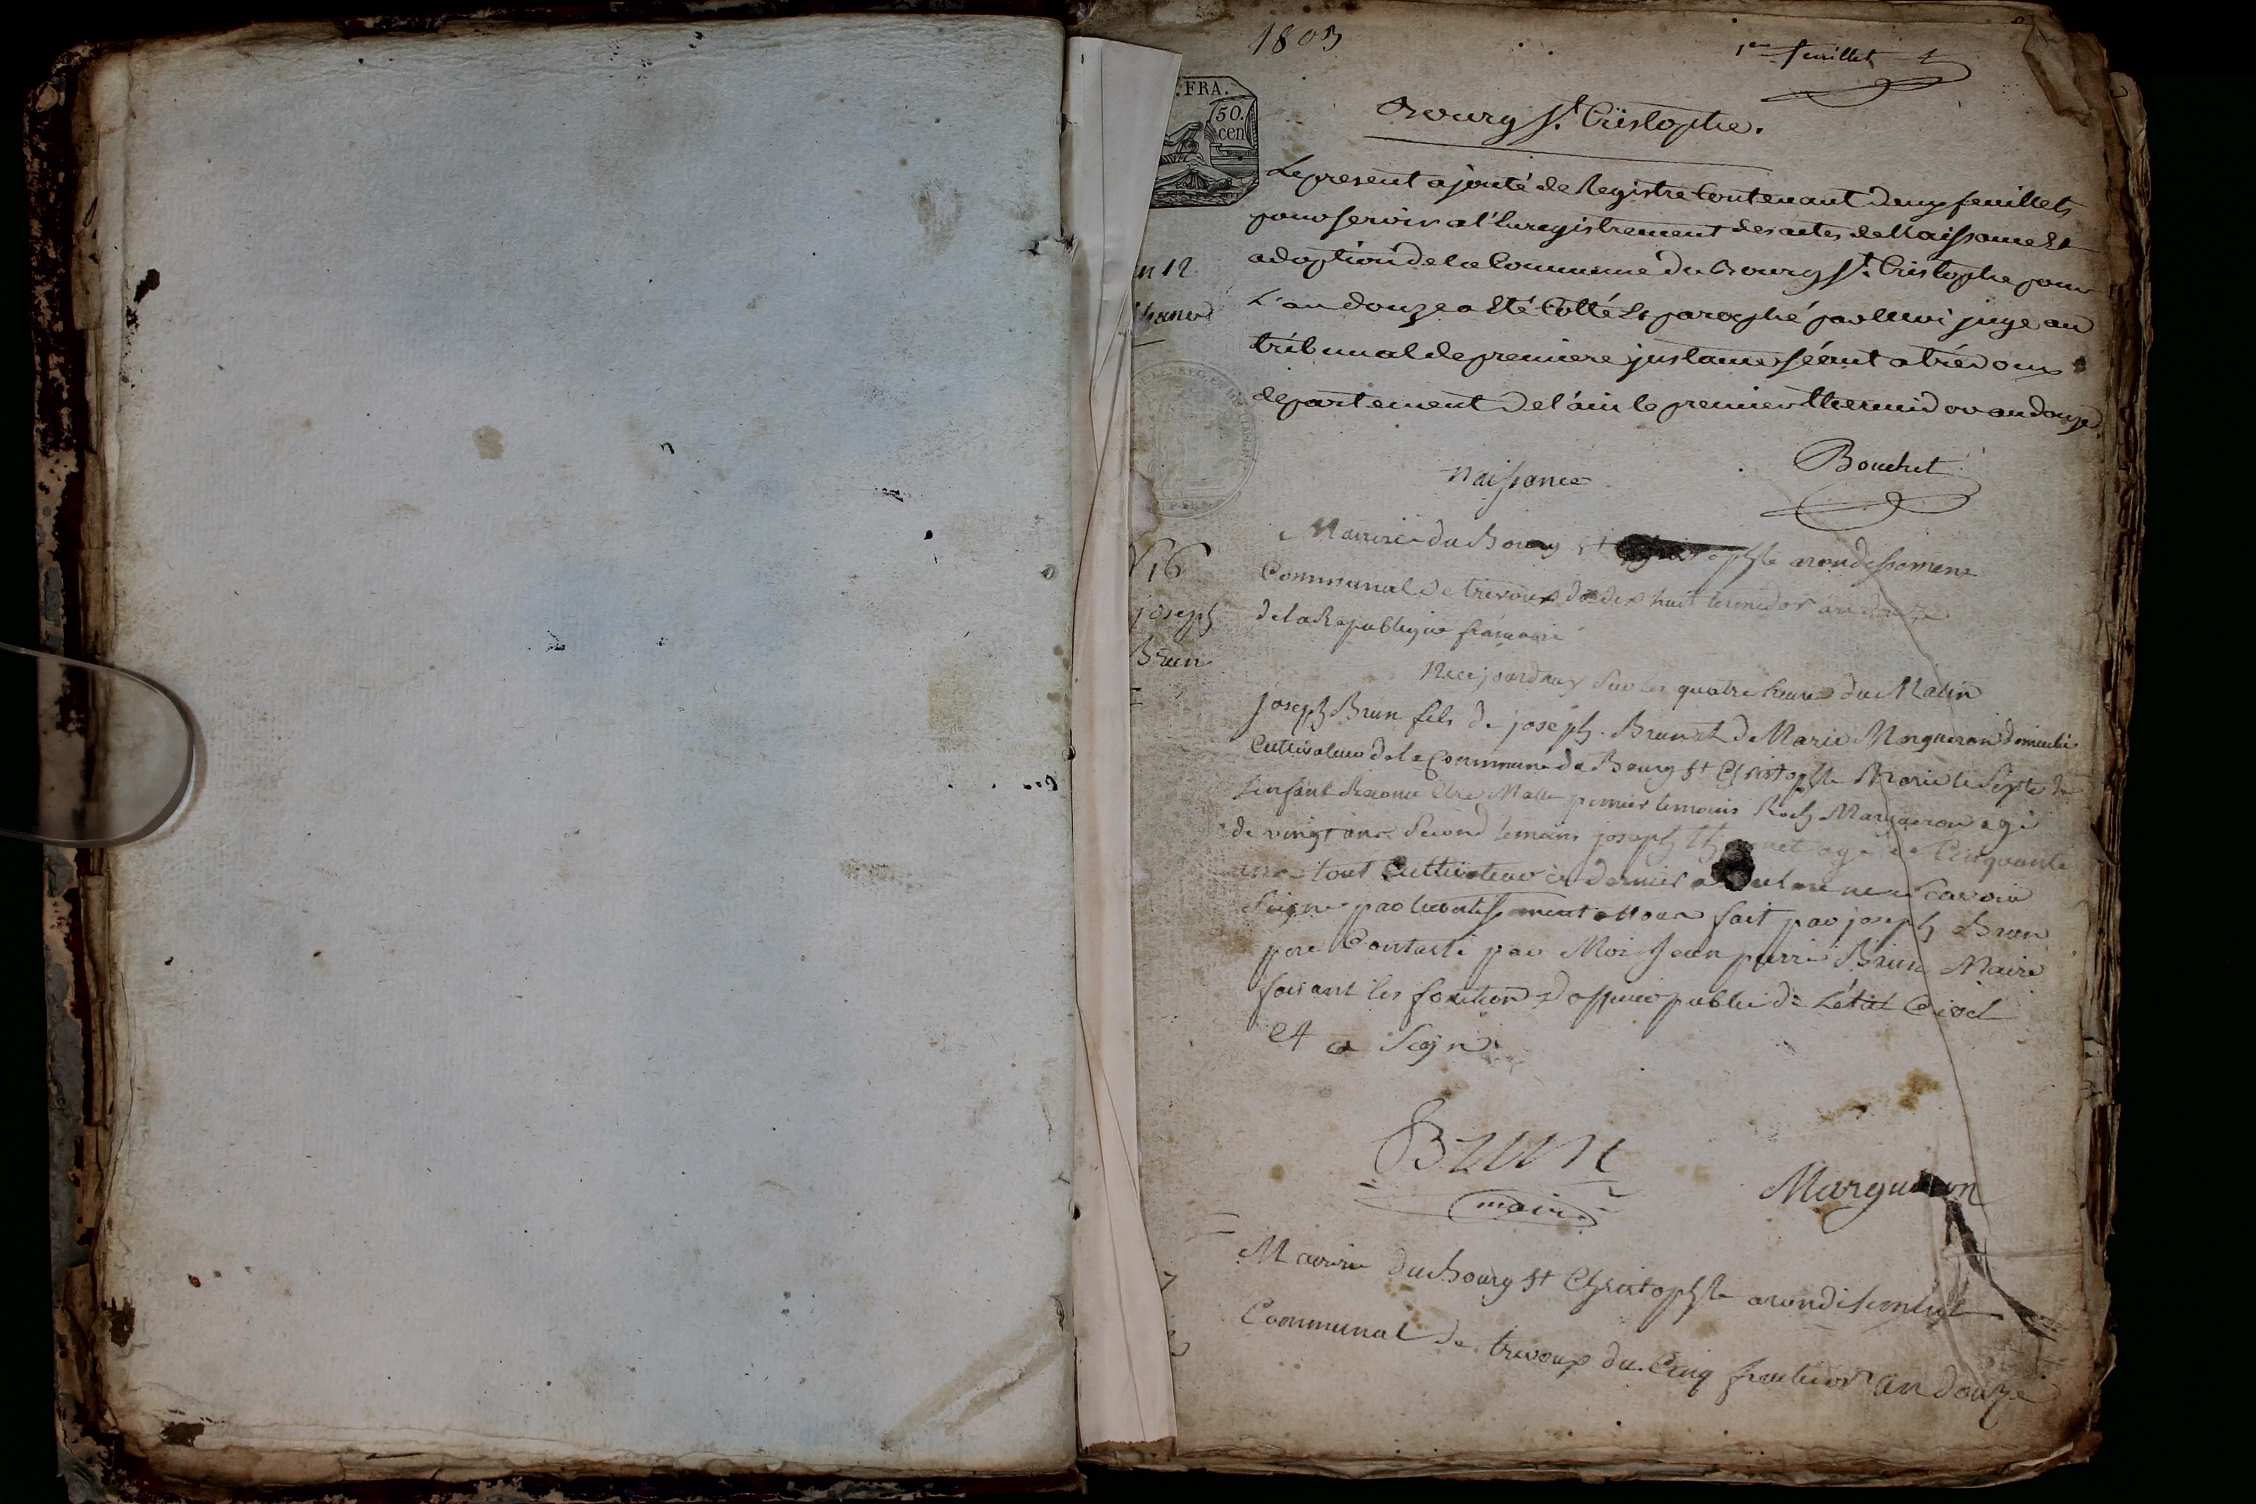 1803
1er feuillet
.FRA.
50.
cen
Bourg St. Cristophe.
Le present ajouté de Registre Contenant deux feuillets
pour servir a l'Enregistrement des actes de Naissance Et
adoption de la Commune du Bourg St. Cristophe pour
L'an douze a Eté Cotté Et paraphé par Moi juge au
tribunal de premiere justance séant a trévoux
departement de l'ain le premier thermidor an douze
Bouchet
an 12
Naissance
N 16
joseph
Brun
Mairie du Bourg St arondissement
Communal de trevoux du dix huit termidor an douze
de la Republique francaise
Nee jourduy sur les quatre heures du Matin
joseph Brun fils de joseph Brun et de Marie Margueron domicilié
Cultivateur de la Commune du Bourg St Christophle Marie le
L'enfant Reconu Etre Malle premier temoins Roch Margueron agé
de vingt ans Second temoins joseph age de Cinquante
ans tout Cultivateur ce dernier a ne Scavoir
Signe fait par joseph Brun
pere Contasté par Moi Jean pierre Brun Maire
faisant les fonction d officier public de L'état Civil
et a Signé
BRUN
maire
Margueron
Mairie du Bourg St Christophle arondisement
Communal de trevoux du Cinq fructidor an douze